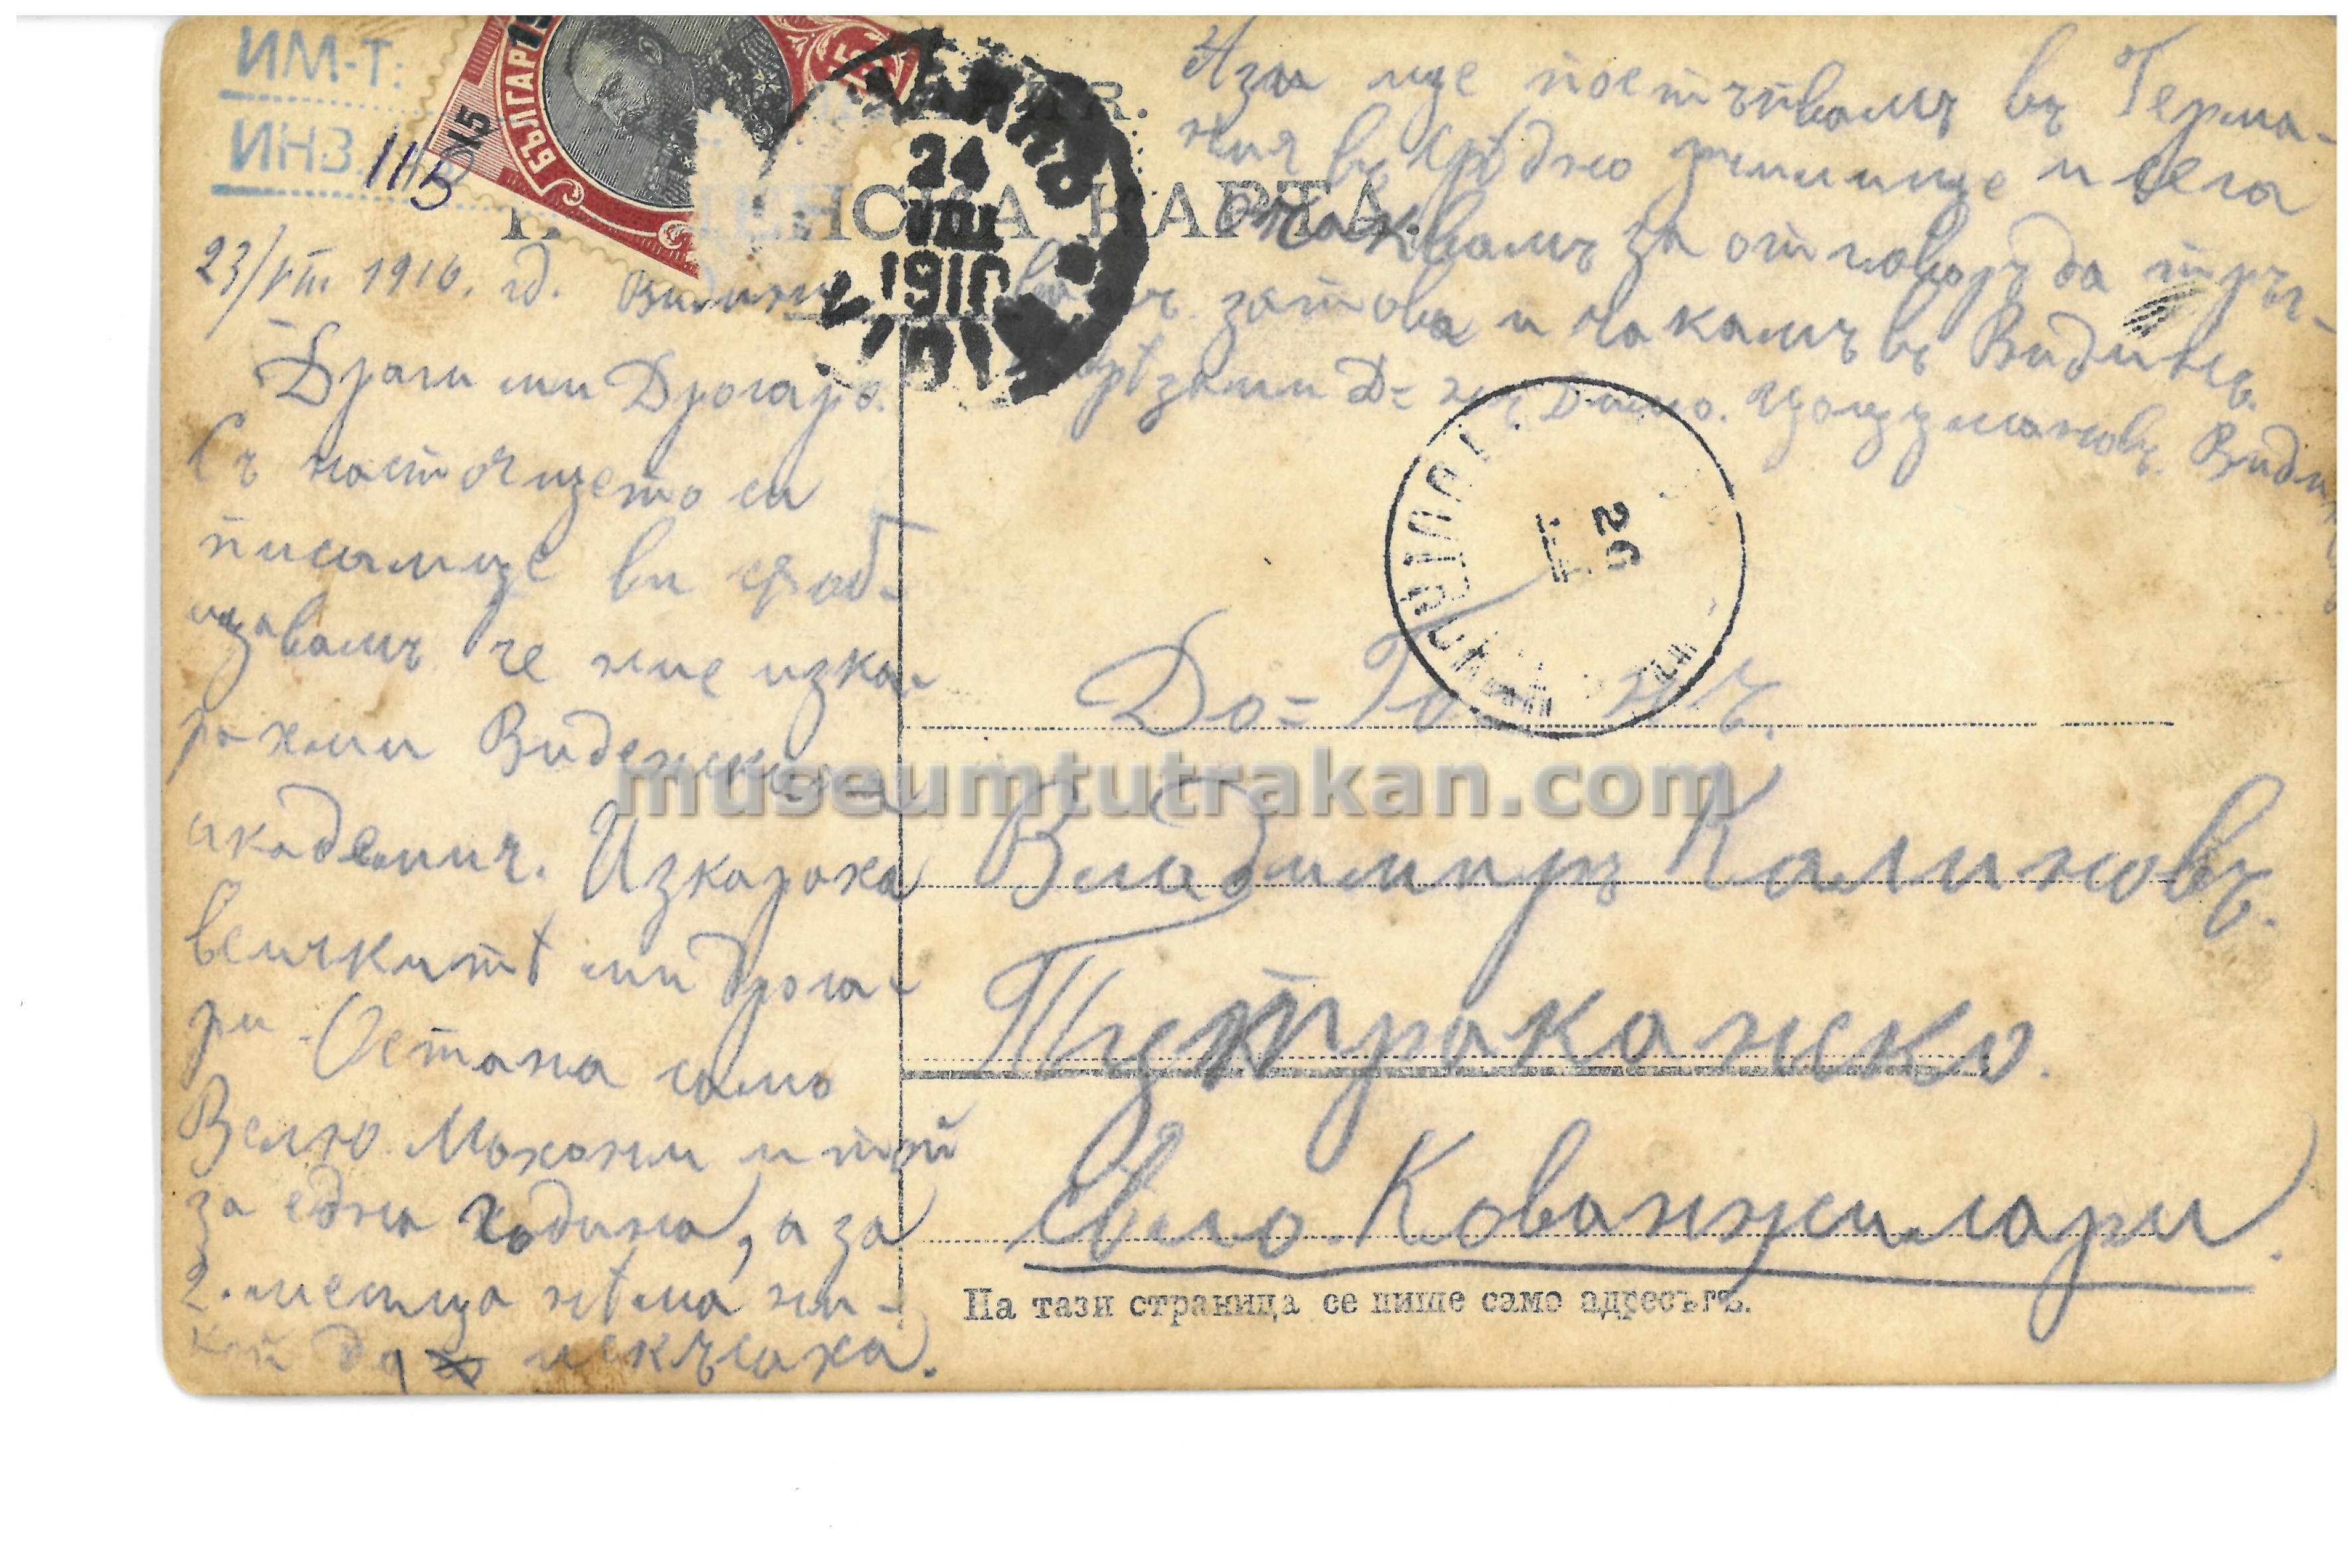 ИМ-Т:
ИНВ. 1115
БЪЛГАРИ
15
24
VIII
1910
КАРТА.
23/VIII 1910. гд. Видинъ
Драги ми Другарю.
Съ настоящето си
писмце ви
че ние изка-
рахми Виденската
академия. Изкараха
всичкитѣ ми друга-
ри. Остана само
Велю и той
за една година, а за
2. месица нѣма ни-
кой да искъсаха.
Азъ ще постъпвамъ въ Герма-
ния въ срѣдно училище и сега
очаквамъ за отговоръ да тръг-
затова и чакамъ въ Видинъ.
Видинъ
26
До = Г н ъ.
Владимиръ Калиновъ.
Тутраканско.
село. Кованжилари.
На тази страница се пише само адресътъ.
museumtutrakan.com